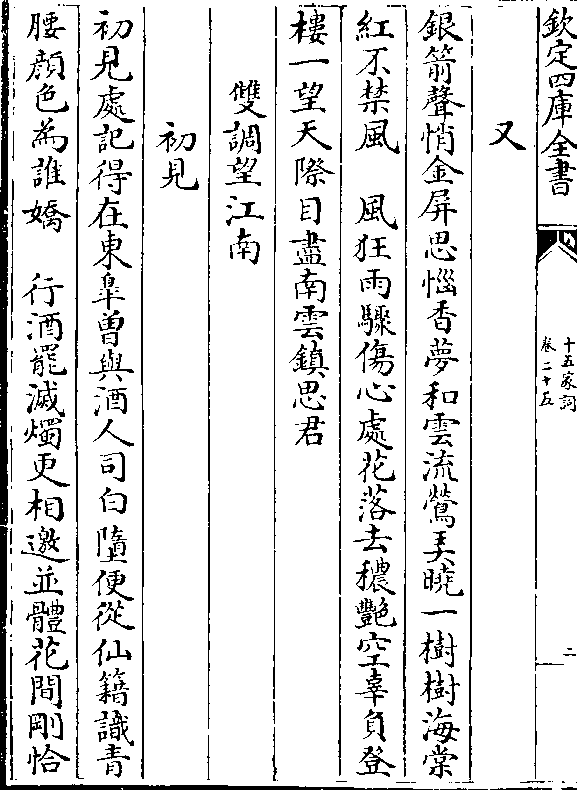 欽定四庫全書
十五家詞
卷二十五
二
又
銀箭聲悄金屏思惱香夢和雲流鶯弄曉一樹樹海棠
紅不禁風　風狂雨驟傷心處花落去穠艷空辜負登
樓一望天際目盡南雲鎮思君
雙調望江南
初見
初見處記得在東臯曾與酒人司白墮便從仙籍識青
腰顔色為誰嬌　行酒罷滅燭更相邀並體花間剛恰